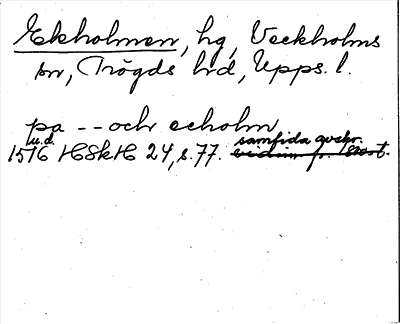 Ekholmen, hg, Veckholms
sn, Trögds hrd, Upps. l.
pa -- och echolm
u.d.
1516 HSkH 24, s. 77. samtida avskr.